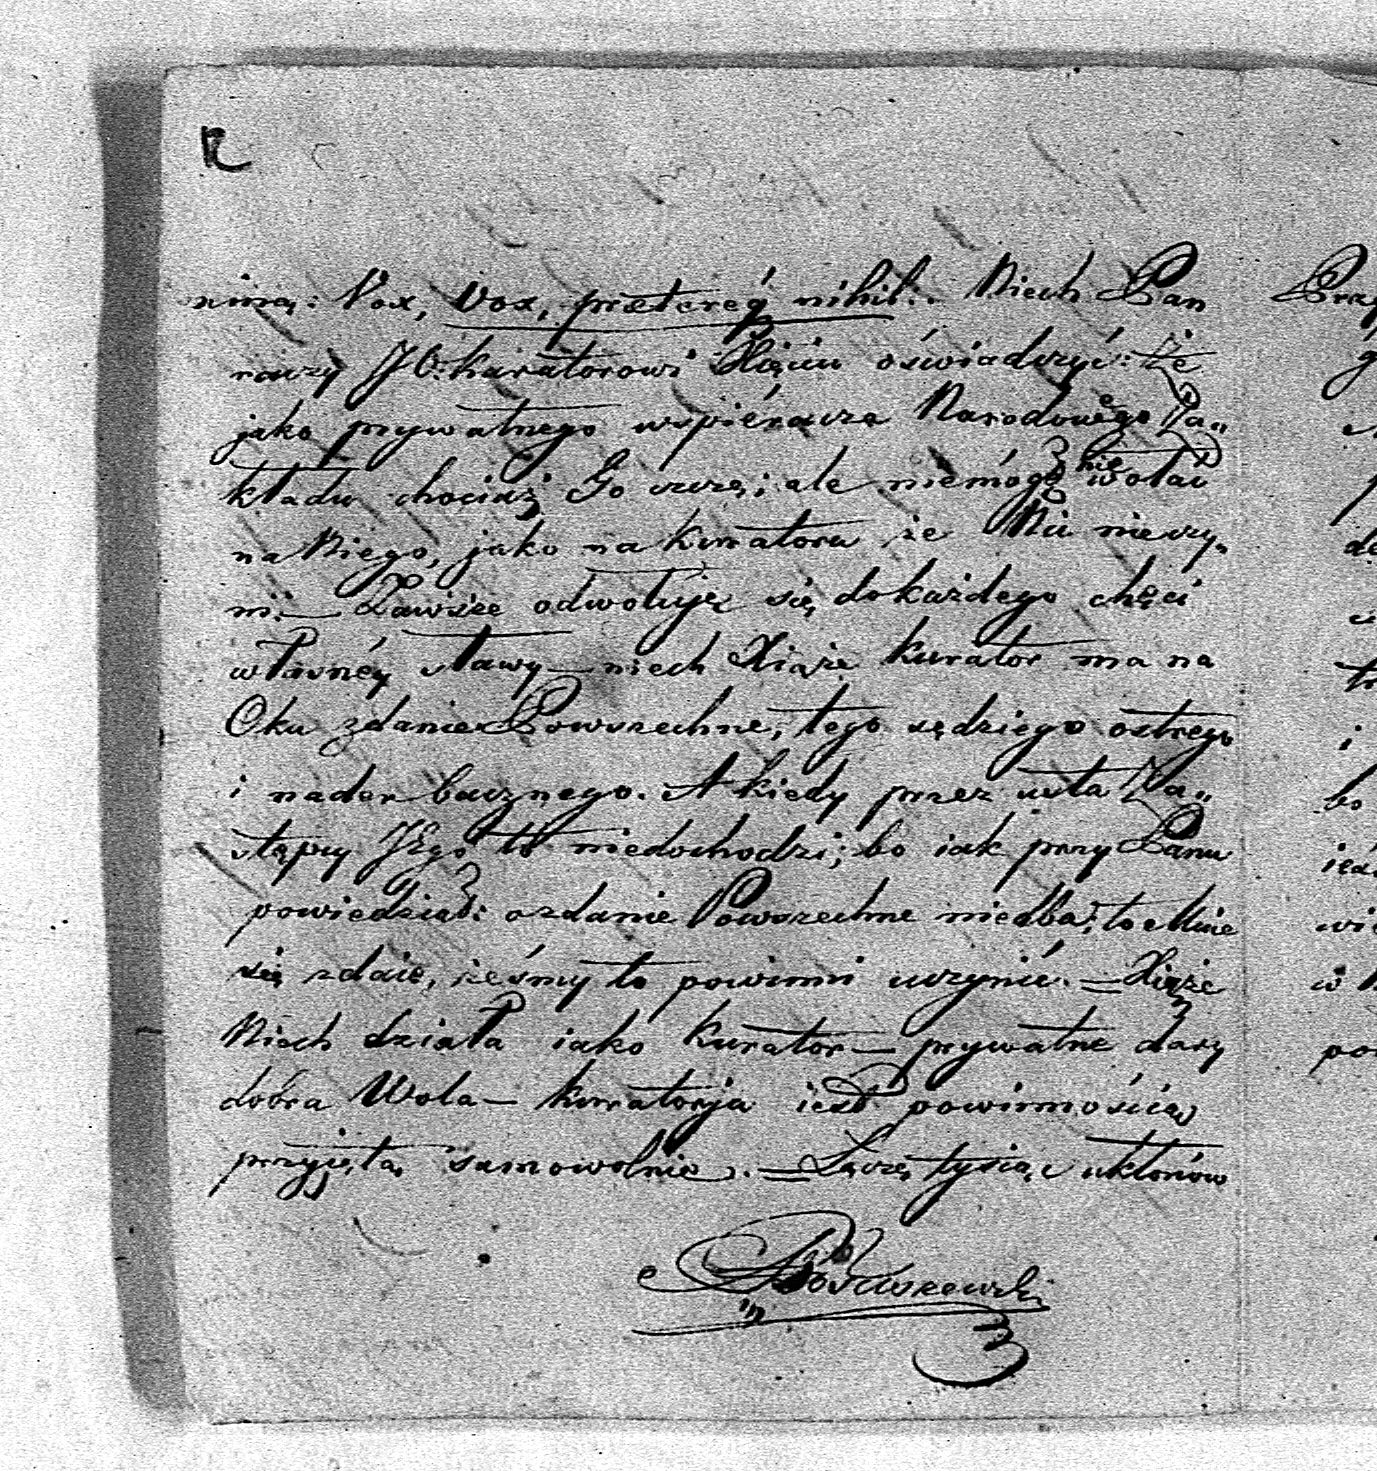 niną: Vox, Vox, prætereą nihil. Niech Pan
raczy JO. Kuratorowi Xięciu oświadczyć: że
jako prywatnego wspiéracza Narodowego Za„
kładu chociaż Go czczę; ale niemogę nie wołać
na Niego, jako na Kuratora że Nic nieczy„
ni.— Zawsze odwołuję się do każdego chęci
własnéy sławy — niech Xiąże Kurator ma na
Oku zdanie Powszechne, tego sędziego ostrego
i nader bacznego. A kiedy przez usta Za„
stępcy JEgo to niedochodzi; bo iak przy Panu
powiedział: o zdanie Powszechne niedba; to Mnie
się zdaie, żeśmy to powinni uczynić. — Xiąże
Niech działa iako Kurator — prywatne dary
dobra Wola — Kuratorja iest powinnością
przyjętą samowolnie. — Łączę tysiąc ukłonów